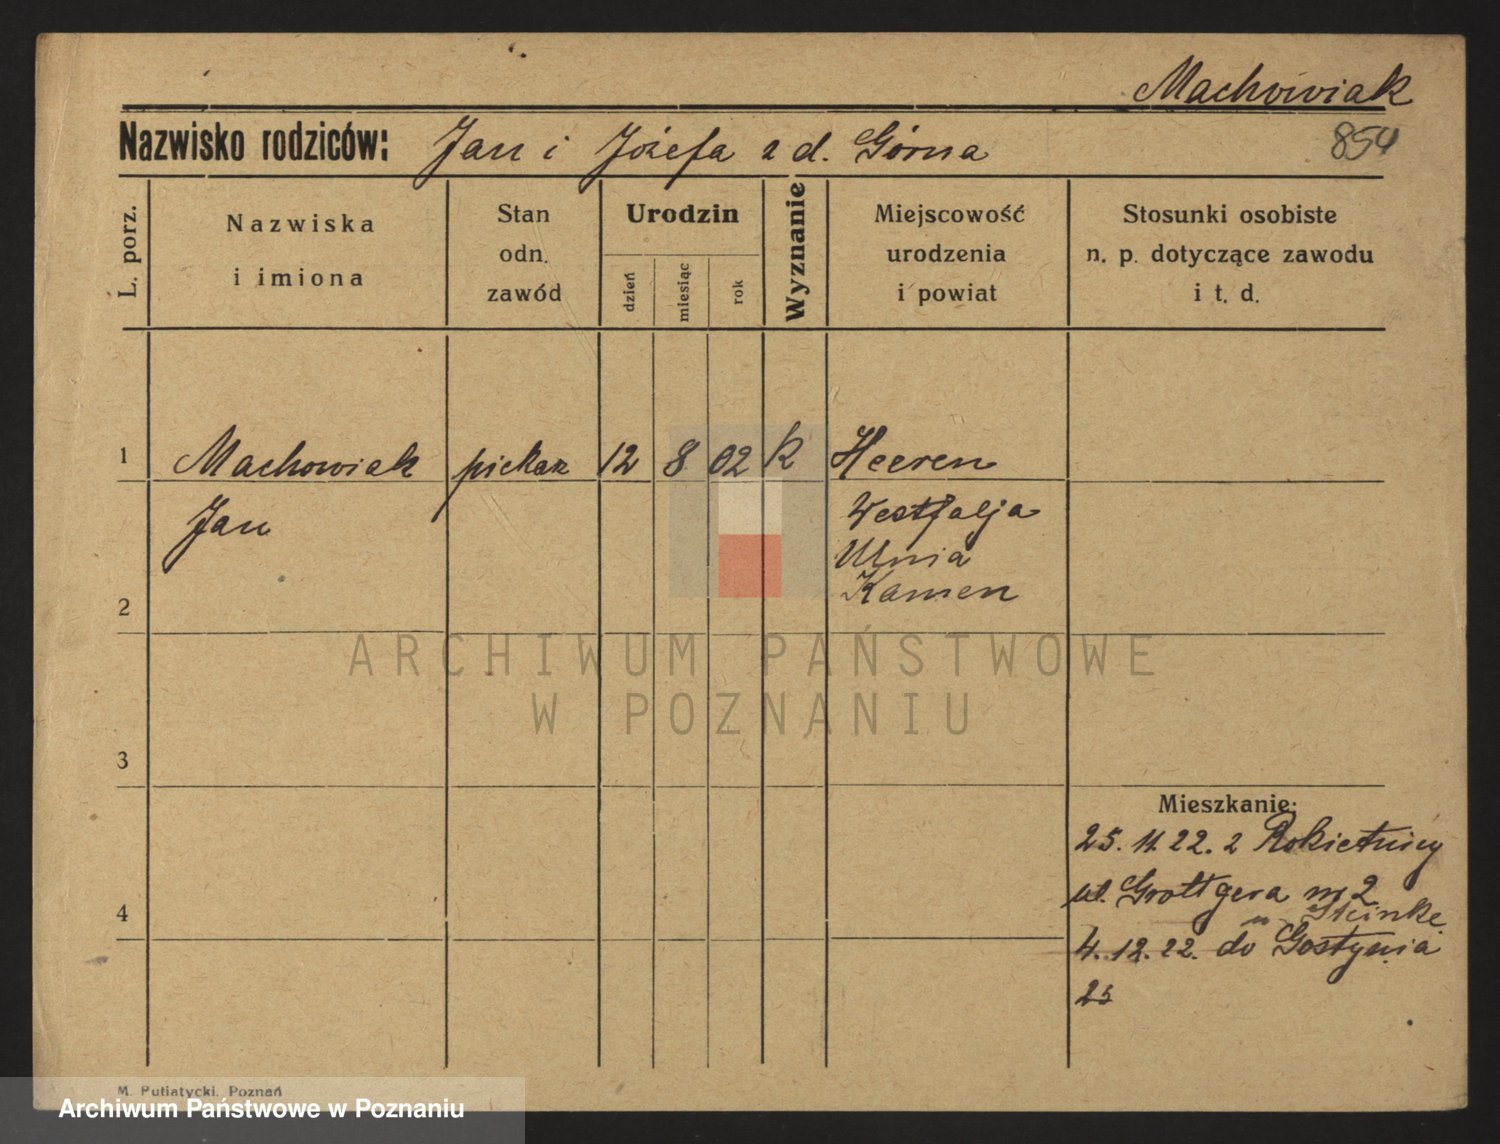 Machowiak
Nazwisko rodziców: Jan i Józefa z d. Górna
854
L. porz.
Nazwiska
i imiona
Stan
odn.
zawód
Urodzin
dzień
miesiąc
rok
Wyznanie
Miejscowość
urodzenia
i powiat
Stosunki osobiste
n. p. dotyczące zawodu
i t. d.
1 Machowiak piekarz 12 8 02 k Heeren
Jan
Westfalja
Unia
Kamen
2
ARCHIWUM PAŃSTWOWE
W POZNANIU
3
Mieszkanie:
25. 11. 22. z Rokietnicy
ul. Grottgera nr 2
u Steinke
4
4. 12. 22. do Gostynia
25
M. Putiatycki, Poznań
Archiwum Państwowe w Poznaniu